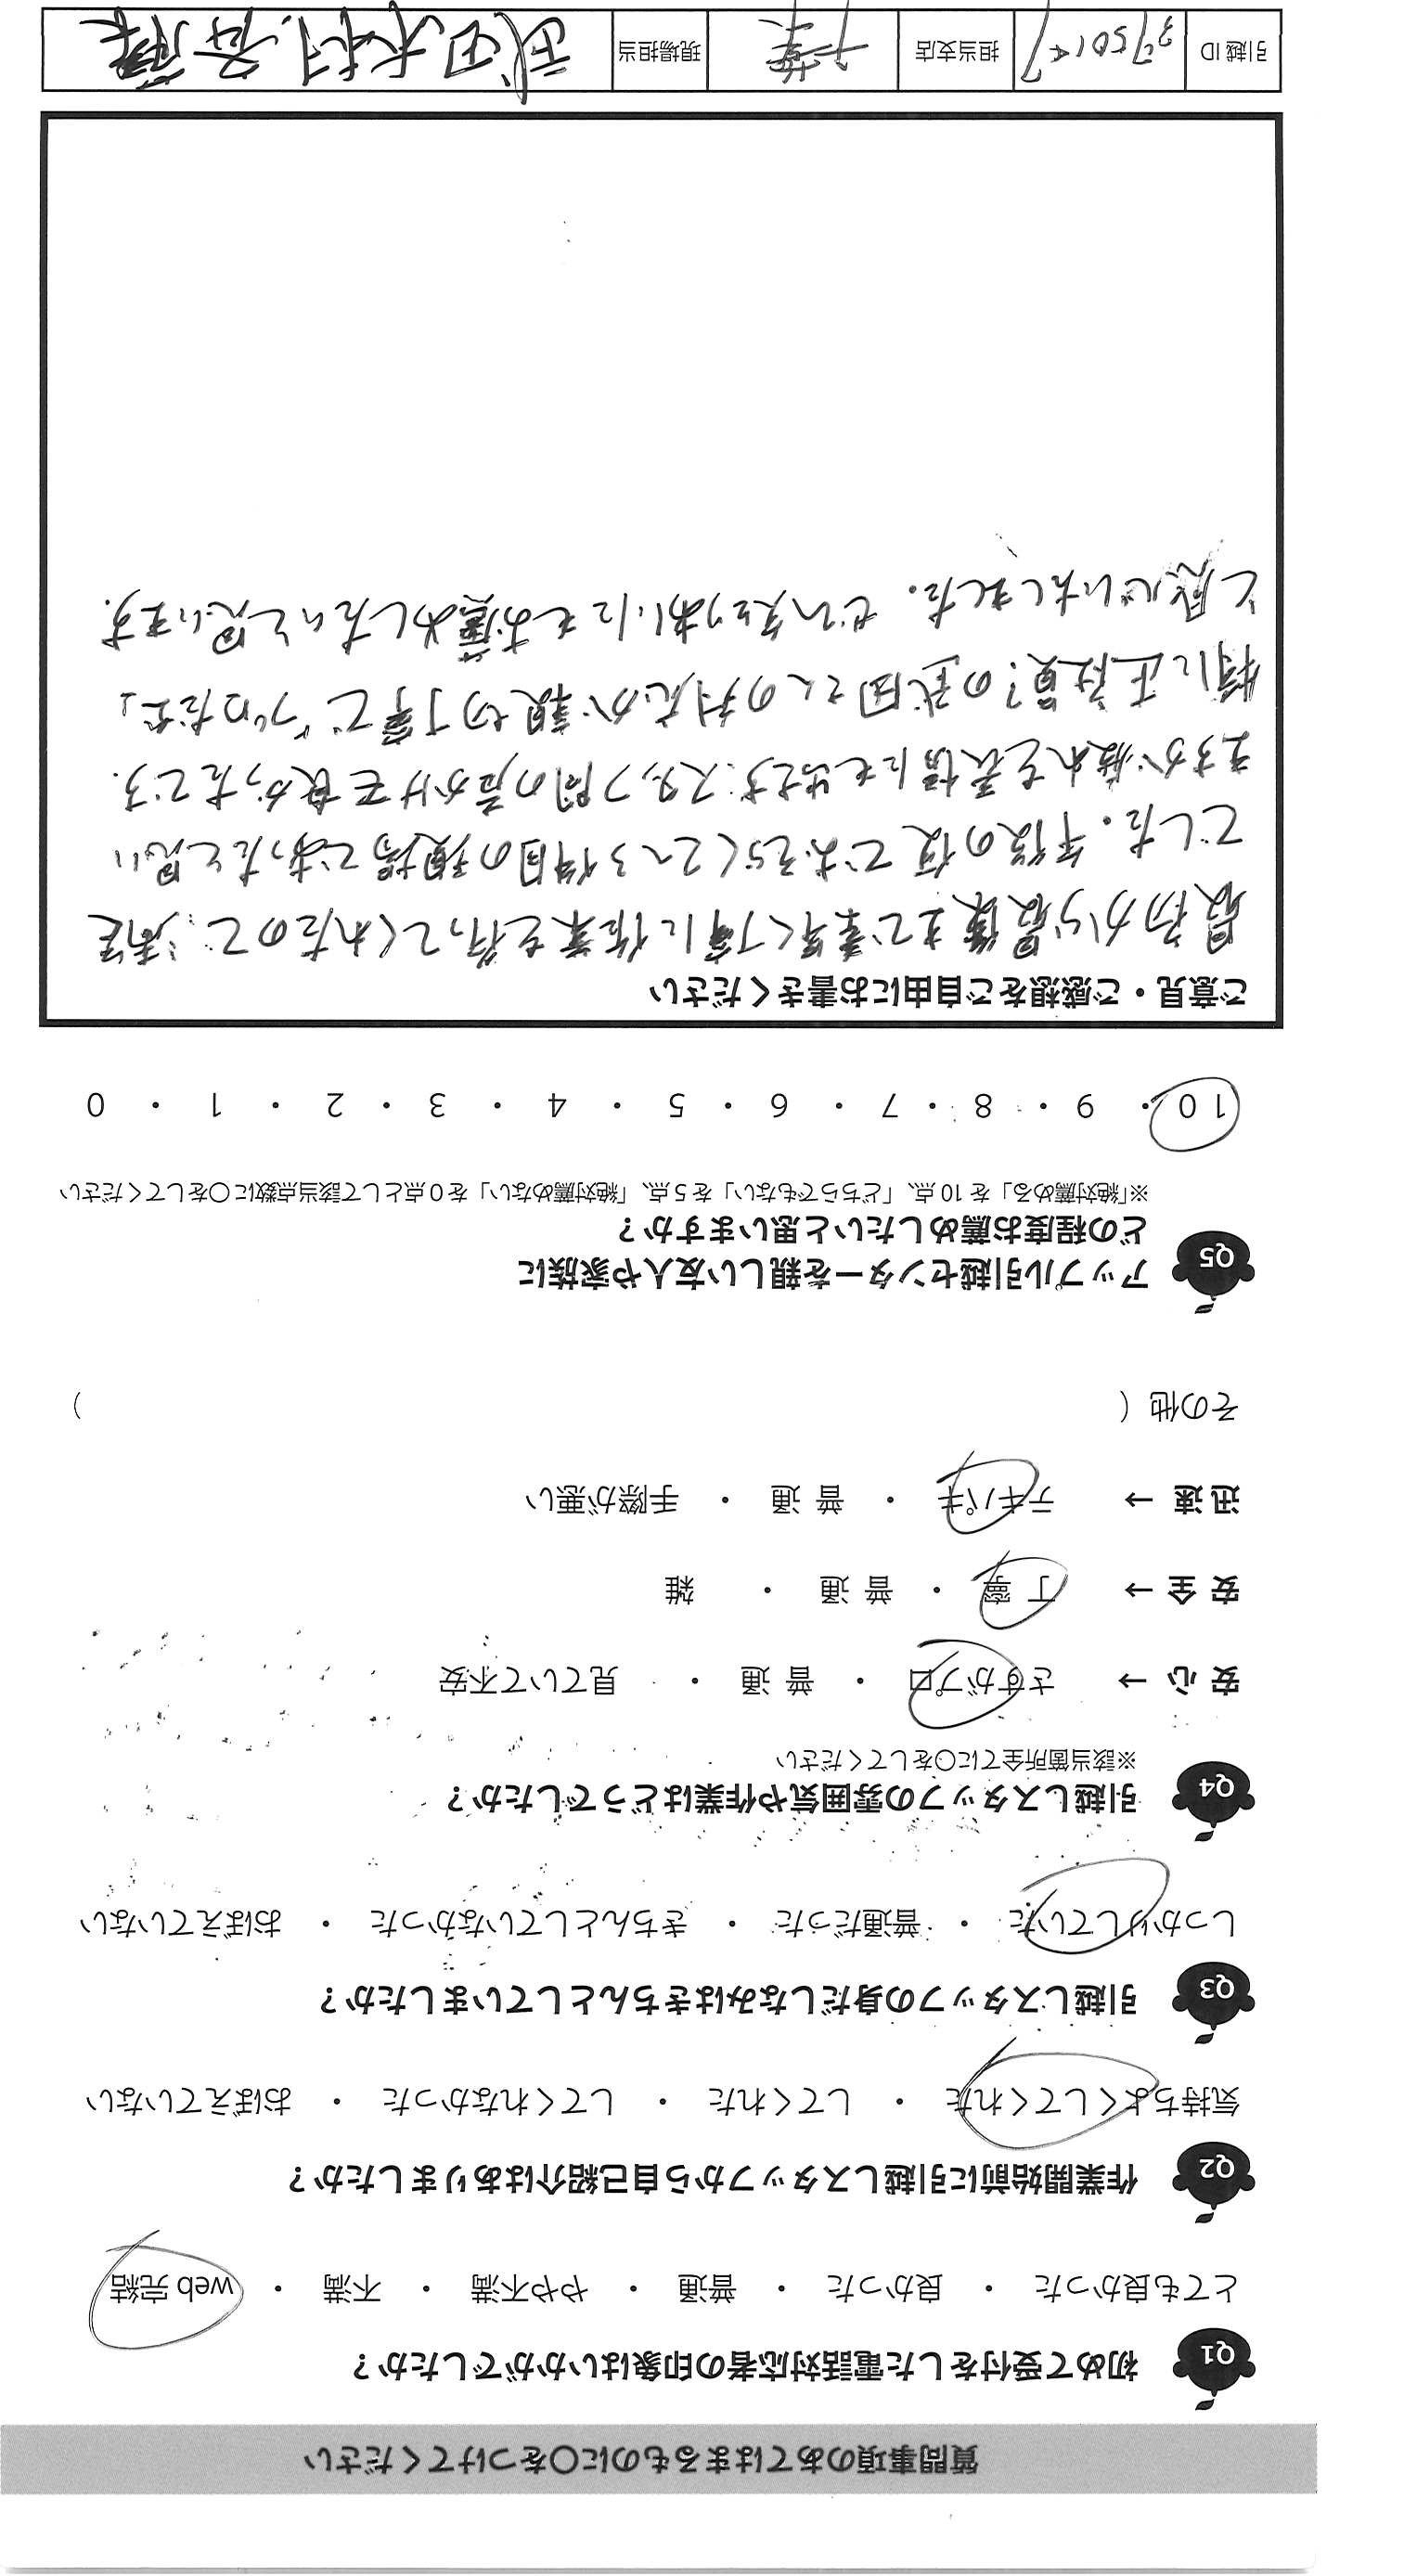 質問事項のあてはまるものに○をつけてください
Q1 初めて受付をした電話対応者の印象はいかがでしたか？
とても良かった ・ 良かった ・ 普通 ・ やや不満 ・ 不満 ・ web 完結
Q2 作業開始前に引越しスタッフから自己紹介はありましたか？
気持ちよくしてくれた ・ してくれた ・ してくれなかった ・ おぼえていない
Q3 引越しスタッフの身だしなみはきちんとしていましたか？
しっかりしていた ・ 普通だった ・ きちんとしていなかった ・ おぼえていない
Q4 引越しスタッフの雰囲気や作業はどうでしたか？
※該当箇所全てに○をしてください
安 心 → さすがプロ ・ 普 通 ・ 見ていて不安
安 全 → 丁 寧 ・ 普 通 ・ 雑
迅 速 → テキパキ ・ 普 通 ・ 手際が悪い
その他（ ）
Q5 アップル引越センターを親しい友人や家族に
どの程度お薦めしたいと思いますか？
※「絶対薦める」を 10 点、「どちらでもない」を 5 点、「絶対薦めない」を 0 点として該当点数に○をしてください
10 ・ 9 ・ 8 ・ 7 ・ 6 ・ 5 ・ 4 ・ 3 ・ 2 ・ 1 ・ 0
ご意見・ご感想をご自由にお書きください
最初から最後まで素早く丁寧に作業を行ってくれたので、満足
でした。午後の便でおそらく2〜3件目の現場であったと思い
ますが疲れを表情にも出さず、スタッフ間の声かけも良かったです.
特に正社員?の武田さんの対応が親切丁寧で「プロだな」
と感心いたしました。ぜひ知りあいにもお薦めしたいと思います.
引越 ID 担当支店 千葉 現場担当 武田 木村